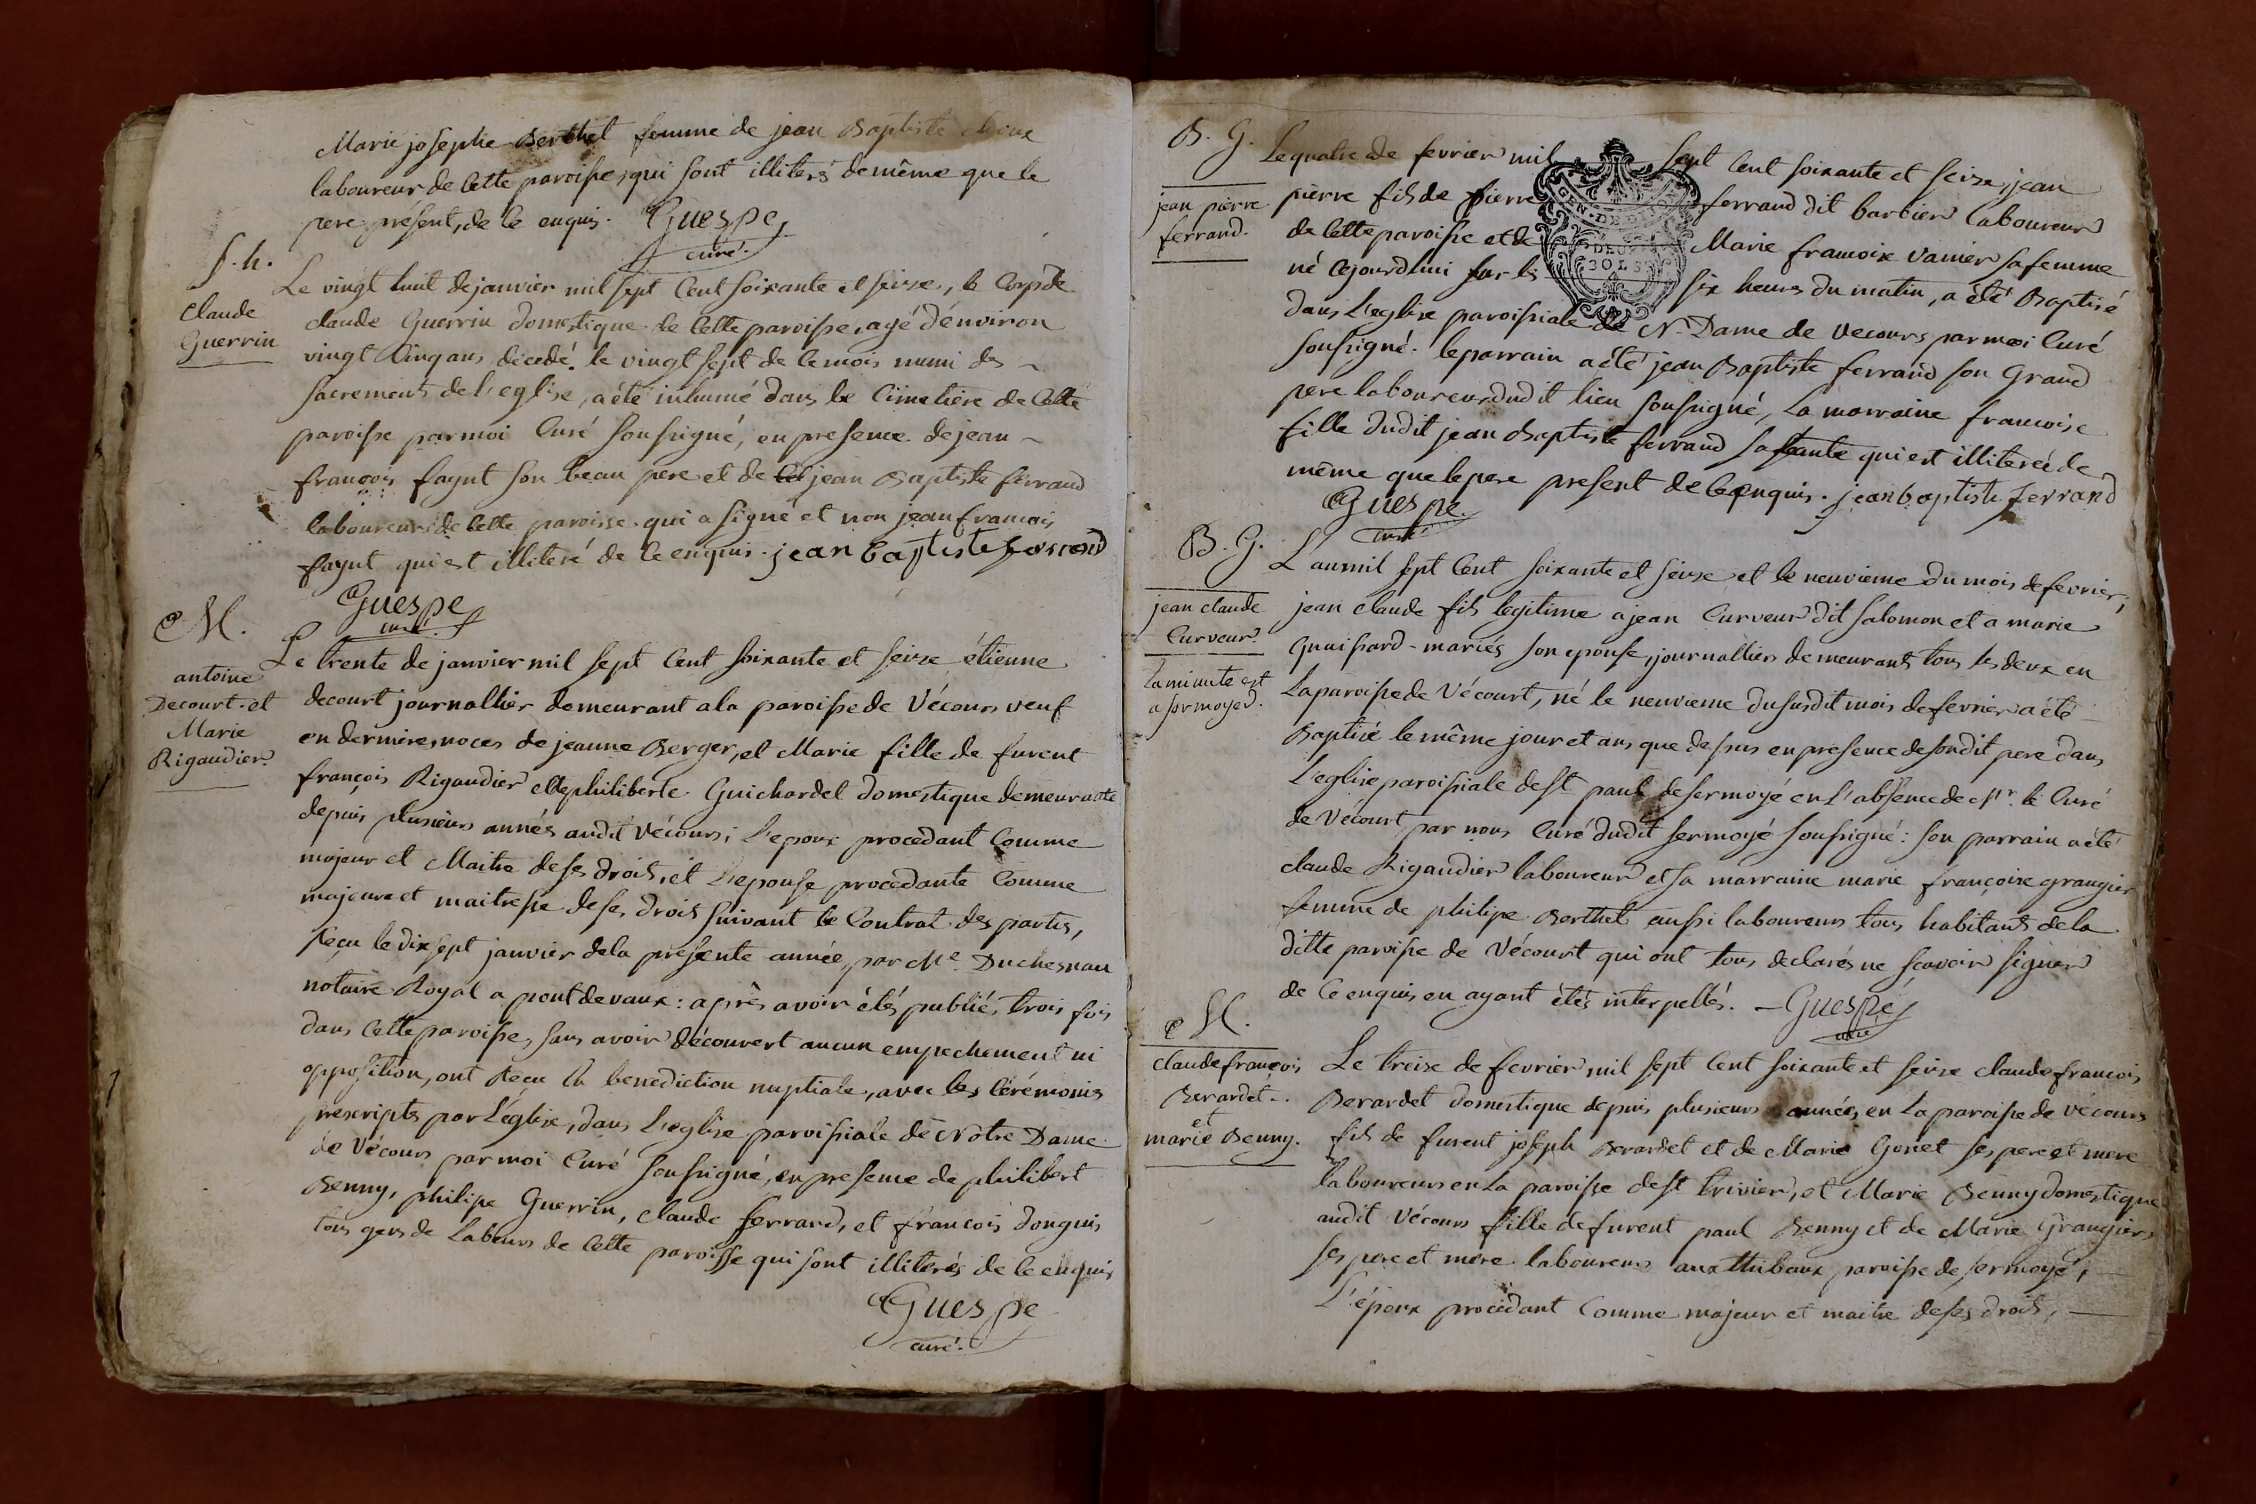 Marie josephe Berthet femme de jean Baptiste
laboureur de cette paroisse, qui sont illiterés de même que le
pere présent, de ce enquis. Guespe
curé.
S. h.
claude
Guerrin
Le vingt huit de janvier mil sept cent soixante et seize, le corps de
claude Guerrin domestique de cette paroisse, agé d'environ
vingt cinq ans, décedé le vingt sept de ce mois muni des
sacrements de l'eglise, a été inhumé dans le cimetière de cette
paroisse par moi curé soussigné, en presence de jean
françois fayut son beau pere et de jean Baptiste ferrand
laboureur de cette paroisse qui a signé et non jean francois
fayut qui est illiteré de ce enquis. jean baptiste ferrand
Guespe
curé.
M.
antoine
Decourt et
Marie
Rigaudier
Le trente de janvier mil sept cent soixante et seize étienne
decourt journallier demeurant a la paroisse de Vécours veuf
en derniere noces de jeanne Berger, et Marie fille de furent
françois Rigaudier et philiberte Guichardet domestique demeurante
depuis plusieurs années audit Vécours; L'epoux procedant comme
majeur et Maitre de ses droits, et L'epouse procedante comme
majeure et maitresse de ses droits suivant le contrat des parties,
reçu le dix sept janvier de la présente année, par Me. Duchesnau
notaire Royal a pont de vaux: après avoir étés publiés trois fois
dans cette paroisse, sans avoir découvert aucun empechement ni
opposition, ont reçu la benediction nuptiale, avec les cérémonies
prescripts par L'église, dans L'eglise paroissiale de Notre Dame
de Vécours par moi curé soussigné, en presence de philibert
Benny, philipe Guerrin, claude ferrand, et francois donguis
tous gens de Labeurs de cette paroisse qui sont illiterés de ce enquis
Guespe
curé.
B. G.
jean pierre
ferrand.
Le quatre de fevrier mil sept cent soixante et seize, jean
pierre fils de pierre ferrand dit barbier laboureur
de cette paroisse et de Marie francoise vanier sa femme
né cejourdhui sur les six heures du matin, a été Baptisé
dans L'eglise paroissiale de N. Dame de Vecours par moi curé
soussigné. le parrain a été jean Baptiste ferrand son Grand
pere laboureur dudit lieu soussigné, La marraine francoise
fille dudit jean Baptiste ferrand sa tante qui est illiterée de
même que le pere present de ce enquis. jean baptiste ferrand
Guespe.
curé
B. G.
jean claude
Curveur.
La minute est
a sermoyed.
L'an mil sept cent soixante et seize et le neuvieme du mois de fevrier,
jean claude fils legitime a jean Curveur dit salomon et a marie
Guaissard mariés son epouse, journalliers demeurants tous les deux en
La paroisse de Vécourt, né le neuvieme du susdit mois de fevrier a été
Baptisé le même jour et ans que dessus en presence de sondit pere dans
L'eglise paroissiale de St paul de sermoyé en L'absence de Mr. le Curé
de Vécourt par nous Curé dudit sermoyé soussigné: son parrain a été
claude Rigaudier laboureur et sa marraine marie françoise grangier
femme de philipe Berthet aussi laboureurs tous habitants de la
ditte paroisse de Vécourt qui ont tous declarés ne scavoir signer
de ce enquis en ayant étés interpellés. Guespe
curé
M.
claude françois
Berardet
et
marie Benny.
Le treize de fevrier mil sept cent soixante et seize claude francois
Berardet domestique depuis plusieurs années en La paroisse de Vécours
fils de furent joseph Berardet et de Marie Gonet ses pere et mere
laboureurs en La paroisse de St trivier, et Marie Benny domestique
audit Vécours fille de furent paul Benny et de Marie Grangier
ses pere et mere laboureurs aux thibaux, paroisse de sermoyé,
L'époux procédant comme majeur et maitre de ses droits,
GEN. DE
2 SOLS